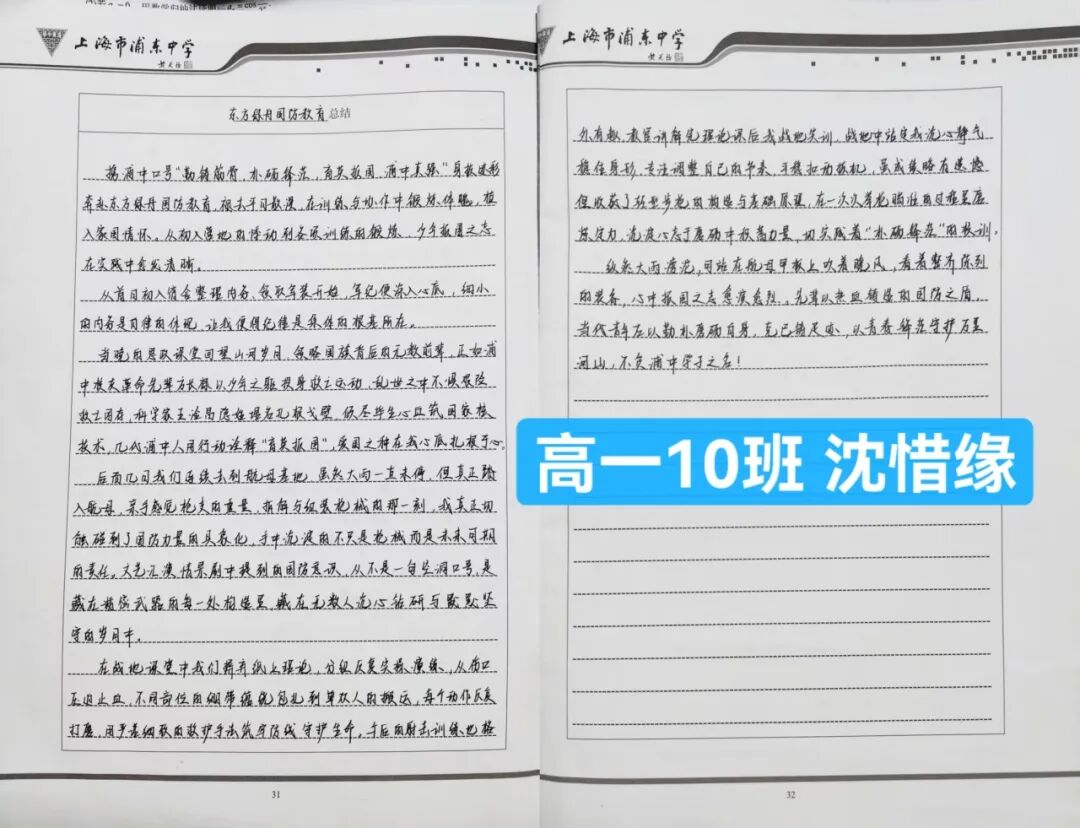 上海市浦东中学
东方绿舟国防教育总结
揚浦中口号“勤鍊筋骨,朴硕,育英报国,浦中真强”
奔赴东方绿舟国防教育,在训练与协作中锻炼体魄,植
入家国情怀。从初入营地的悸动到各项训练的锻炼,少年报国之志
在实践中愈发清晰。
从首日初入宿舍整理内务、领取军装开始,军纪便深入心底,细小
的内务是自律的体现,让我便得纪律是集体的根基所在。
当晚的思政课堂回望山河岁月,领略国旗背后的无数前辈,正如浦
中校友革命先辈方长龄以少年之躯投身救亡运动,乱世之中不惧艰险
救亡图存,科学家王淦昌隐姓埋名扎根戈壁,倾尽毕生心血筑国家核
技术,几代浦中人用行动诠释“育英报国”,爱国之种在我心底扎根于心。
后面几日我们连续去到航母基地,虽然大雨一直未停,但真正踏
入航母,亲手感觉枪支的重量,拆解与组装枪械的那一刻,我真正切
触碰到了国防力量的具象化,手中沉淀的不只是枪械而是未来可期
的责任。文艺汇演情景剧中提到的国防意识,从不是一句空洞口号,是
藏在精密武器的每一处构造里,藏在无数人沉心钻研与默默坚
守的岁月中。
在战地课堂中我们摒弃纸上理论,分组反复实操演练,从伤口
止血,不同部位的绷带缠绕包扎到单双人的搬运,每个动作反复
打磨,用严谨细致的救护手法筑守防线守护生命。午后的射击训练也格
31
上海市浦东中学
外有趣,教官讲解完理论课后战地实训,战地中站定我沉心静气
稳住身形,专注调整自己的节奏,手稳扣动扳机,虽成集略有遗憾
但收获了轻型步枪的构造与基础原理,在一次次举枪瞄准的过程里磨
炼定力,沉淀心志于磨砺中积蓄力量,切实践着的校训。
纵然大雨滂沱,可站在航母甲板上吹着晚风,看着整齐陈列
的装备,心中报国之志愈演愈烈。先辈以热血铸造的国防之盾,
当代青年应以勤朴磨砺自身,以青春守护万里
河山,不负浦中学子之名!
高一10班 沈惜缘
32